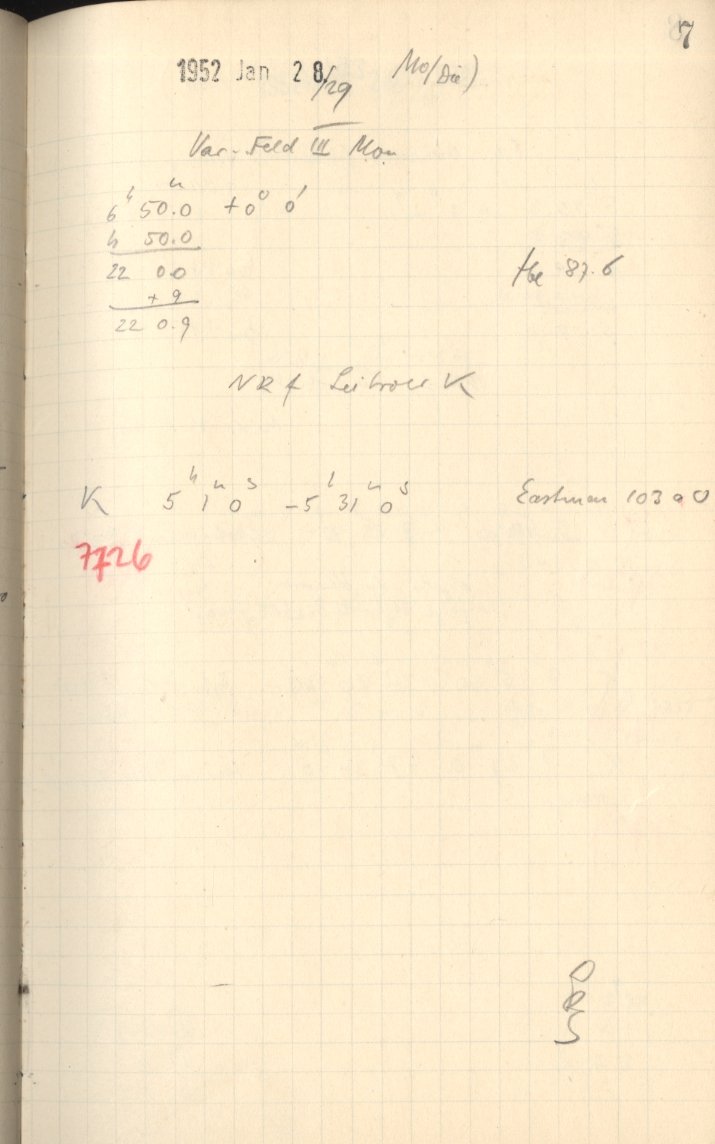 7
1952 Jan 28/29 Mo/Die)
Var-Feld III Mon
6h 50.0m +0° 0'
4 50.0
22 00
+ 9
22 0.9
87.6
NRf Leitrohr K
K 5h 1m 0s -5 31m 0s Eastman 103aO
7726